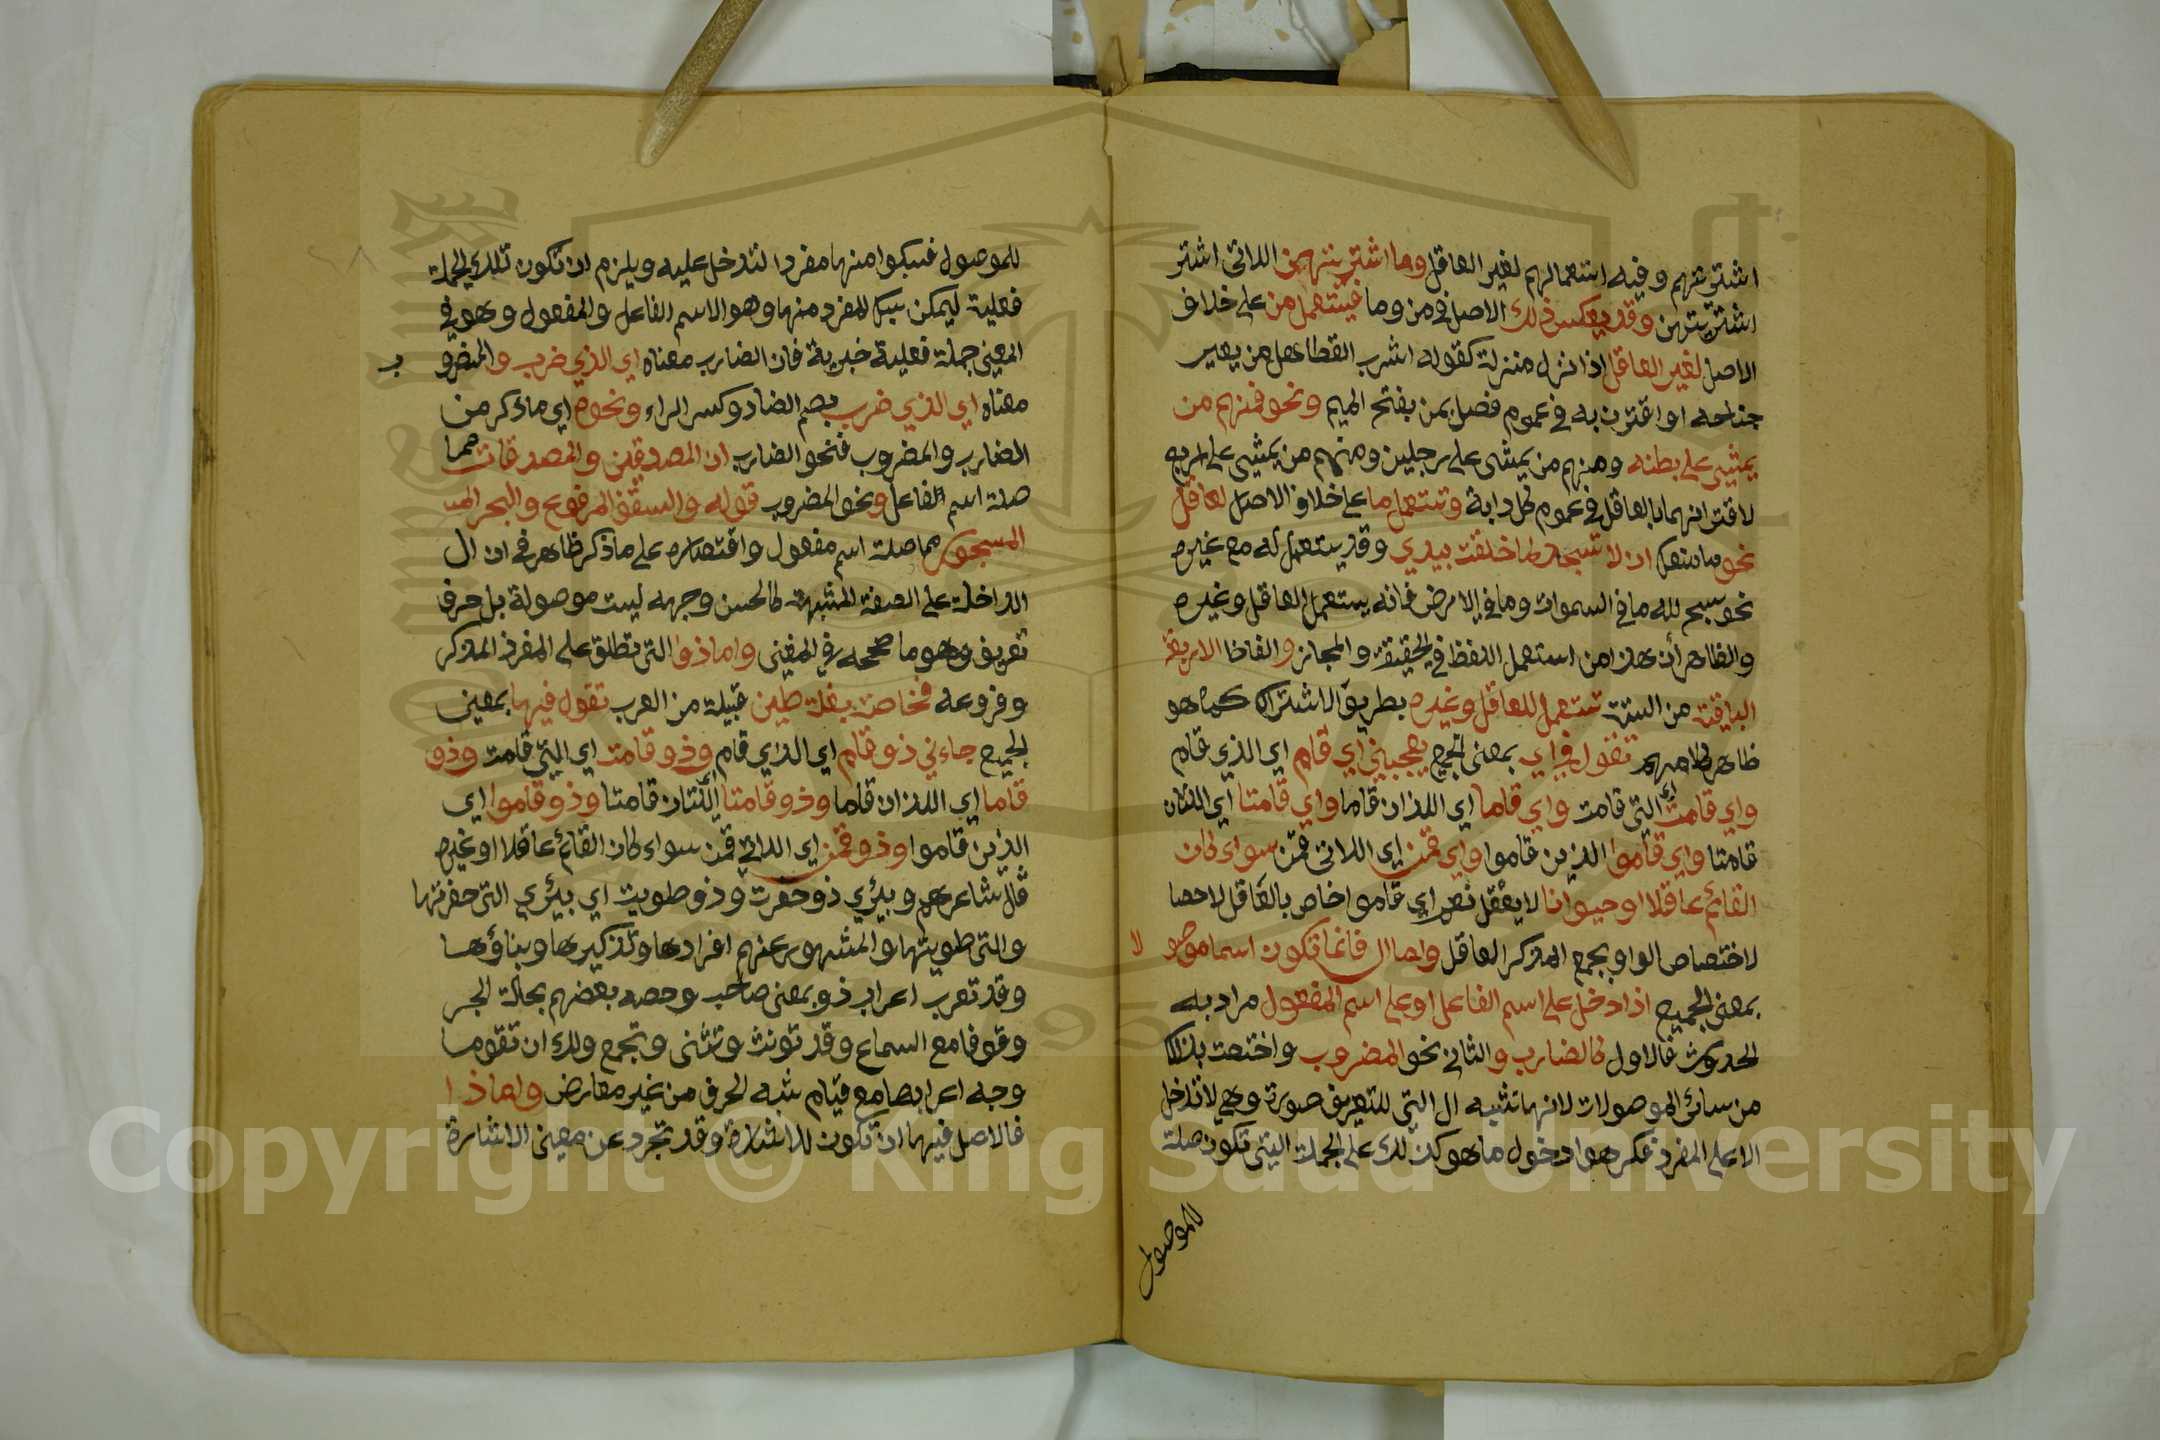 اشتريتهم وفيه استعمالهم لغير العاقل وما اشتريتهن اي اللاتي اشتر
اشتريتهن وقد يعكس ذلك الاصل في من وما فيستعمل من على خلاف
الاصل لغير العاقل اذا نزل منزلة كقوله اسرب القطا هل من يعير
جناحه او اقترن به في عموم فصل بمن بفتح الميم ونحو فمنهم من
يمشي على بطنه ومنهم من يمشي على رجلين ومنهم من يمشي على اربع
لاقترانهما بالعاقل في عموم كل دابة وتستعمل ما على خلاف الاصل لعاقل
نحو ما منعك ان لا تسجد لما خلقت بيدي وقد يستعمل له مع غيره
نحو سبح لله ما في السموات وما في الارض فانه يستعمل العاقل وغيره
والظاهر أن هذا من استعمل اللفظ في الحقيقة والمجاز والفاظ الاربعة
الباقية من الستة تستعمل للعاقل وغيره بطريق الاشتراك كما هو
ظاهر كلامهم تقول في اي بمعنى الجمع يعجبني اي قام اي الذي قام
واي قامت اي التي قامت واي قاما اي اللذان قاما واي قامتا اي اللتان
قامتا واي قاموا الذين قاموا واي قمن اي اللاتي قمن سواء كان
القائم عاقلا او حيوانا لا يعقل نعم اي قاموا خاص بالعاقل لاحصا
لاختصاص الواو بجمع المذكر العاقل واما ال فانما تكون اسما موصو لا
بمعنى الجميع اذا دخل على اسم الفاعل او على اسم المفعول مراد به
الحدوث فالاول كالضارب والثاني نحو المضروب واختصت بذلك
من سائر الموصولات لانها تشبه ال التي للتعريف صورة وهي لا تدخل
الا على المفرد فكرهوا دخول ما هو كذلك على الجملة التي تكون صلة
للموصول
للموصول فسبكوا منها مفردا لتدخل عليه ويلزم ان تكون تلك الجملة
فعلية ليمكن سبك المفرد منها وهو الاسم الفاعل والمفعول وهو في
المعنى جملة فعلية خبرية فان الضارب معناه اي الذي ضرب والمضرو ب
معناه اي الذي ضرب بضم الضاد وكسر الراء ونحوه اي ما ذكر من
الضارب والمضروب فنحو الضارب ان المصدقين والمصدقات مما
صلة اسم الفاعل ونحو المضروب قوله والسقف المرفوع والبحر المسـ
المسجور مما صلة اسم مفعول واقتصاره على ما ذكر ظاهر في ان ال
الداخلة على الصفة المشبهة كالحسن وجهه ليست موصولة بل حرف
تعريف وهو ما صححه في المغني واما ذو التي تطلق على المفرد المذكر
وفروعه فخاصة بلغة طيئ قبيلة من العرب تقول فيها بمعنى
الجميع جاءني ذو قام اي الذي قام وذو قامت اي التي قامت وذو
قاما اي اللذان قاما وذو قامتا اي اللتان قامتا وذو قاموا اي
الذين قاموا وذو قمن اي اللاتي قمن سواء كان القائم عاقلا او غيره
قال شاعرهم وبيري ذو حفرت وذو طويت اي بيري التي حفرتها
والتي طويتها والمشهور عنهم افرادها وتذكيرها وبناؤها
وقد تعرب اعراب ذو بمعنى صاحب وخصه بعضهم بحالة الجر
وقوفا مع السماع وقد تونث وتثنى وتجمع ولك ان تقول ما
وجه اعرابها مع قيام شبه الحرف من غير معارض واما ذا
فالاصل فيها ان تكون للاشارة وقد تجرد عن معنى الاشارة
Copyright © King Saud University